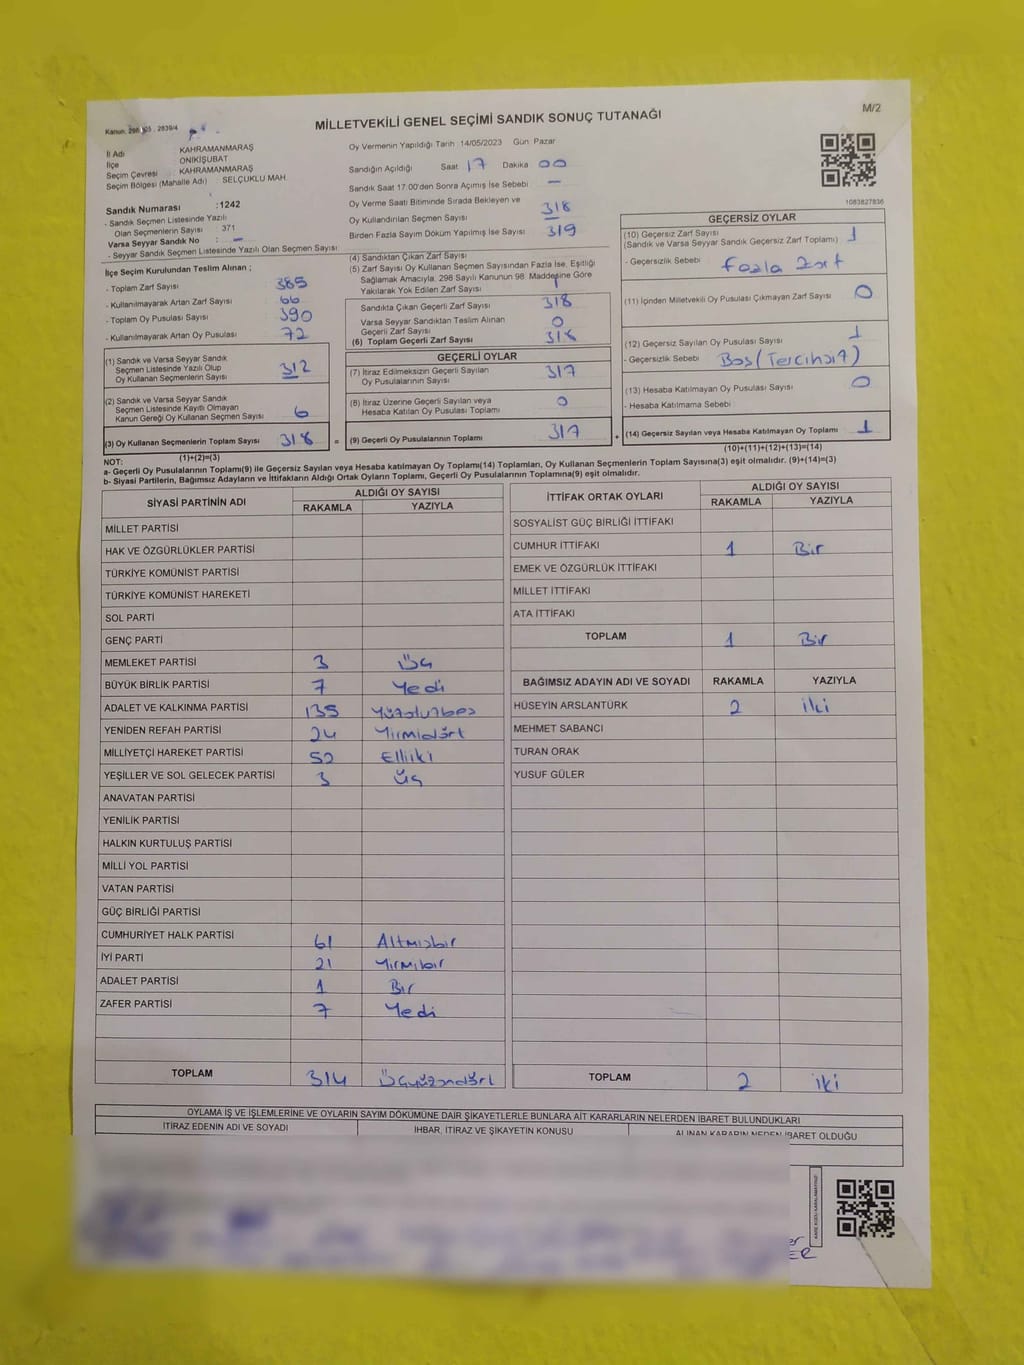 Kanun: 298 105 , 2839/4
M/2
MİLLETVEKİLİ GENEL SEÇİMİ SANDIK SONUÇ TUTANAĞI
İl Adı : KAHRAMANMARAŞ
İlçe : ONİKİŞUBAT
Seçim Çevresi : KAHRAMANMARAŞ
Seçim Bölgesi (Mahalle Adı) : SELÇUKLU MAH.
Sandık Numarası :1242
- Sandık Seçmen Listesinde Yazılı
Olan Seçmenlerin Sayısı 371
Varsa Seyyar Sandık No : –
- Seyyar Sandık Seçmen Listesinde Yazılı Olan Seçmen Sayısı:
Oy Vermenin Yapıldığı Tarih :14/05/2023 Gün Pazar
Sandığın Açıldığı Saat 17 Dakika 00
Sandık Saat 17.00'den Sonra Açımış İse Sebebi –
Oy Verme Saati Bitiminde Sırada Bekleyen ve
Oy Kullandırılan Seçmen Sayısı 318
Birden Fazla Sayım Döküm Yapılmış İse Sayısı 319
1083827836
İlçe Seçim Kurulundan Teslim Alınan ;
- Toplam Zarf Sayısı 385
- Kullanılmayarak Artan Zarf Sayısı 66
- Toplam Oy Pusulası Sayısı 390
- Kullanılmayarak Artan Oy Pusulası 72
(1) Sandık ve Varsa Seyyar Sandık
Seçmen Listesinde Yazılı Olup
Oy Kullanan Seçmenlerin Sayısı 312
(2) Sandık ve Varsa Seyyar Sandık
Seçmen Listesinde Kayıtlı Olmayan
Kanun Gereği Oy Kullanan Seçmen Sayısı 6
(3) Oy Kullanan Seçmenlerin Toplam Sayısı 318 =
(1)+(2)=(3)
(4) Sandıktan Çıkan Zarf Sayısı
(5) Zarf Sayısı Oy Kullanan Seçmen Sayısından Fazla İse, Eşitliği
Sağlamak Amacıyla, 298 Sayılı Kanunun 98. Maddesine Göre
Yakılarak Yok Edilen Zarf Sayısı 1
Sandıkta Çıkan Geçerli Zarf Sayısı 318
Varsa Seyyar Sandıktan Teslim Alınan
Geçerli Zarf Sayısı 0
(6) Toplam Geçerli Zarf Sayısı 318
GEÇERLİ OYLAR
(7) İtiraz Edilmeksizin Geçerli Sayılan
Oy Pusulalarının Sayısı 317
(8) İtiraz Üzerine Geçerli Sayılan veya
Hesaba Katılan Oy Pusulası Toplamı 0
(9) Geçerli Oy Pusulalarının Toplamı 317 +
GEÇERSİZ OYLAR
(10) Geçersiz Zarf Sayısı 1
(Sandık ve Varsa Seyyar Sandık Geçersiz Zarf Toplamı)
- Geçersizlik Sebebi fazla Zarf
(11) İçinden Milletvekili Oy Pusulası Çıkmayan Zarf Sayısı 0
(12) Geçersiz Sayılan Oy Pusulası Sayısı 1
- Geçersizlik Sebebi Boş
(13) Hesaba Katılmayan Oy Pusulası Sayısı 0
- Hesaba Katılmama Sebebi
(14) Geçersiz Sayılan veya Hesaba Katılmayan Oy Toplamı 1
(10)+(11)+(12)+(13)=(14)
NOT:
a- Geçerli Oy Pusulalarının Toplamı(9) ile Geçersiz Sayılan veya Hesaba katılmayan Oy Toplamı(14) Toplamları, Oy Kullanan Seçmenlerin Toplam Sayısına(3) eşit olmalıdır. (9)+(14)=(3)
b- Siyasi Partilerin, Bağımsız Adayların ve İttifakların Aldığı Ortak Oyların Toplamı, Geçerli Oy Pusulalarının Toplamına(9) eşit olmalıdır.
SİYASİ PARTİNİN ADI ALDIĞI OY SAYISI
RAKAMLA YAZIYLA
MİLLET PARTİSİ
HAK VE ÖZGÜRLÜKLER PARTİSİ
TÜRKİYE KOMÜNİST PARTİSİ
TÜRKİYE KOMÜNİST HAREKETİ
SOL PARTİ
GENÇ PARTİ
MEMLEKET PARTİSİ 3 Üç
BÜYÜK BİRLİK PARTİSİ 7 Yedi
ADALET VE KALKINMA PARTİSİ 135 Yüzotuzbeş
YENİDEN REFAH PARTİSİ 24 Yirmidört
MİLLİYETÇİ HAREKET PARTİSİ 52 Elliiki
YEŞİLLER VE SOL GELECEK PARTİSİ 3 Üç
ANAVATAN PARTİSİ
YENİLİK PARTİSİ
HALKIN KURTULUŞ PARTİSİ
MİLLİ YOL PARTİSİ
VATAN PARTİSİ
GÜÇ BİRLİĞİ PARTİSİ
CUMHURİYET HALK PARTİSİ 61 Altmışbir
İYİ PARTİ 21 Yirmibir
ADALET PARTİSİ 1 Bir
ZAFER PARTİSİ 7 Yedi
TOPLAM 314 Üçyüzondört
İTTİFAK ORTAK OYLARI ALDIĞI OY SAYISI
RAKAMLA YAZIYLA
SOSYALİST GÜÇ BİRLİĞİ İTTİFAKI
CUMHUR İTTİFAKI 1 Bir
EMEK VE ÖZGÜRLÜK İTTİFAKI
MİLLET İTTİFAKI
ATA İTTİFAKI
TOPLAM 1 Bir
BAĞIMSIZ ADAYIN ADI VE SOYADI RAKAMLA YAZIYLA
HÜSEYİN ARSLANTÜRK 2 iki
MEHMET SABANCI
TURAN ORAK
YUSUF GÜLER
TOPLAM 2 iki
OYLAMA İŞ VE İŞLEMLERİNE VE OYLARIN SAYIM DÖKÜMÜNE DAİR ŞİKAYETLERLE BUNLARA AİT KARARLARIN NELERDEN İBARET BULUNDUKLARI
İTİRAZ EDENİN ADI VE SOYADI
İHBAR, İTİRAZ VE ŞİKAYETİN KONUSU
ALINAN KARARIN NEDEN İBARET OLDUĞU